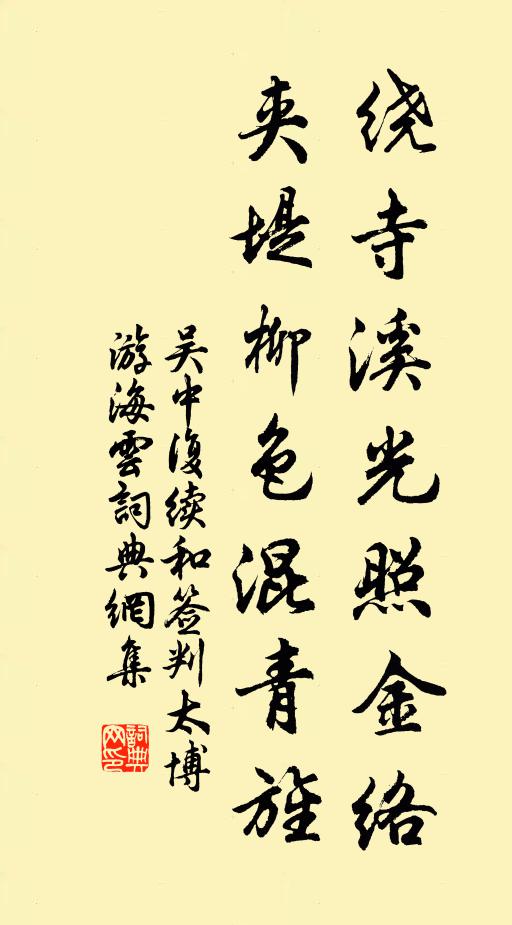 绕寺溪光照金络
夹堤柳色混青旌
吴中復续和签判太博
游海雲詞典網集
詞典
网印